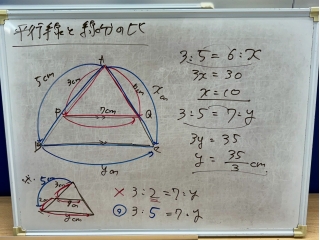 平行線と線分の比
A
5cm
3cm
6cm
x cm
P
7cm
Q
B
C
y cm
3:5=6:x
3x=30
x=10
3:5=7:y
3y=35
y=35/3 cm
5cm
3cm
2cm
7cm
y cm
× 3:2=7:y
◎ 3:5=7:y